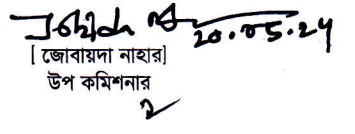 20.05.24
[ জোবায়দা নাহার]
উপ কমিশনার